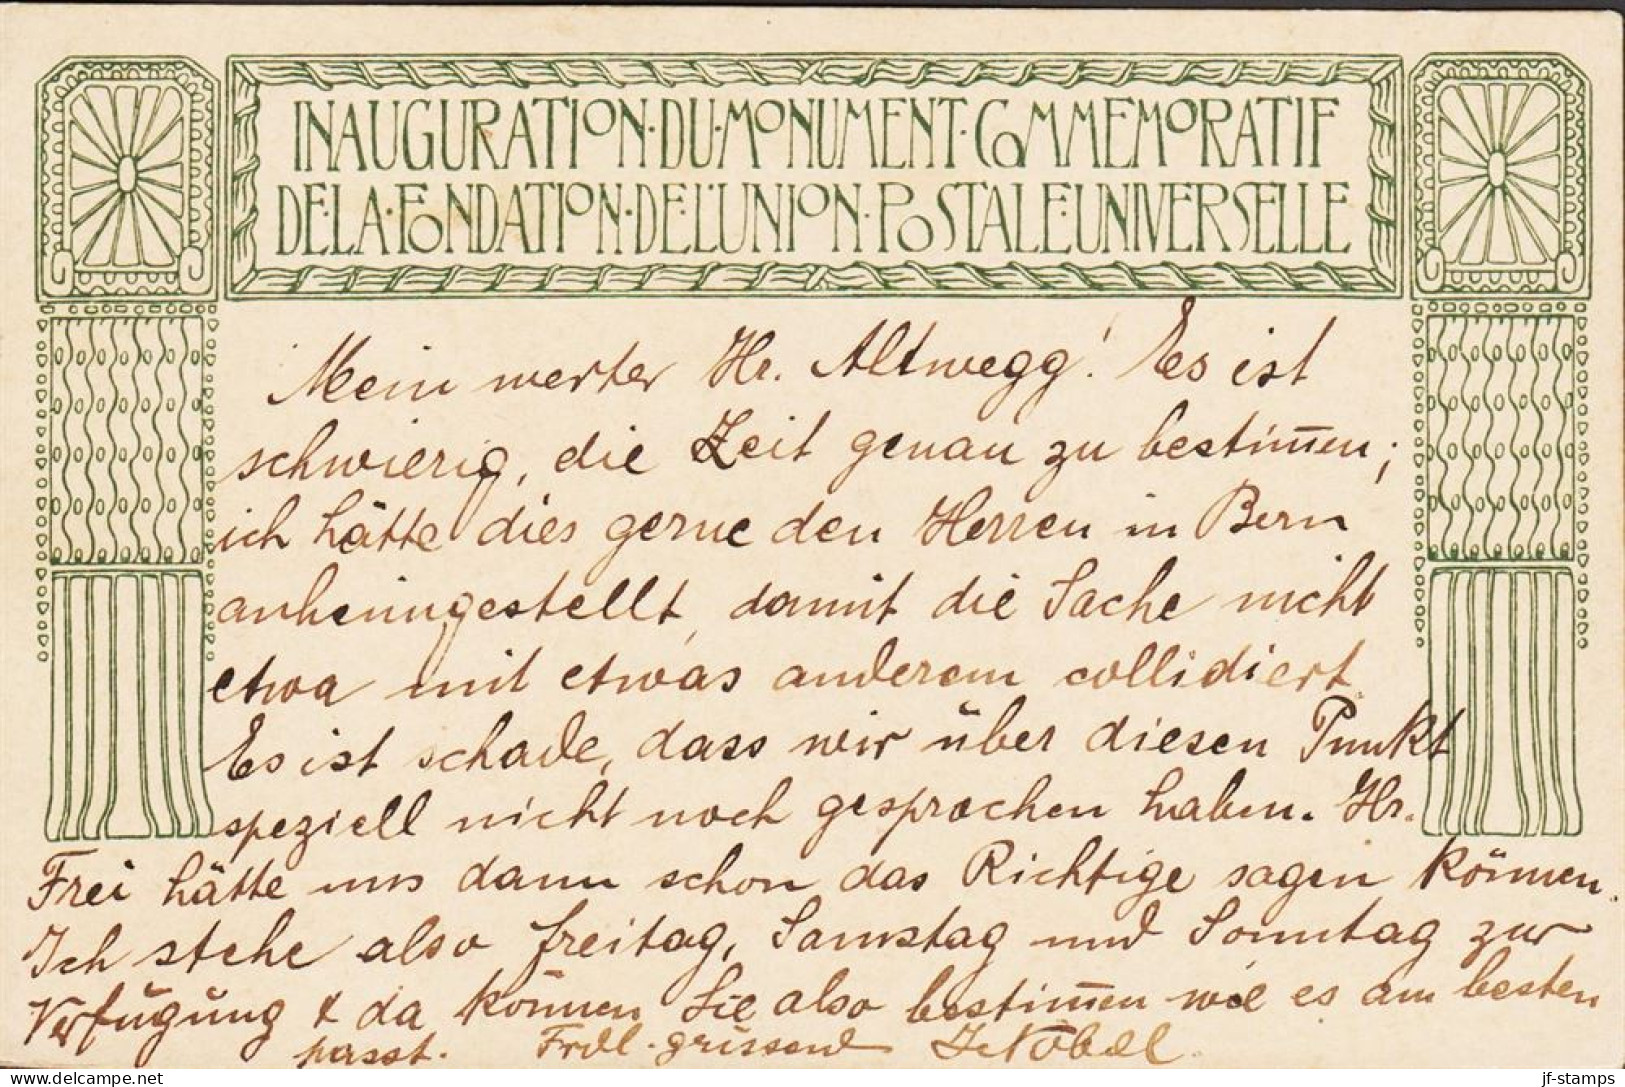 INAUGURATION·DU·MONUMENT·COMMEMORATIF
DE·LA·FONDATION·DE·L'UNION·POSTALE·UNIVERSELLE
Mein werter Hr. Altwegg! Es ist
schwierig, die Zeit genau zu bestim̅en;
ich hätte dies gerne den Herren in Bern
anheimgestellt, damit die Sache nicht
etwa mit etwas anderem collidiert.
Es ist schade, dass wir über diesen Punkt
speziell nicht noch gesprochen haben. Hr.
Frei hätte uns dann schon das Richtige sagen können.
Ich stehe also Freitag, Samstag und Sonntag zur
Verfügung & da können Sie also bestim̅en wie es am besten
passt. Frdl. grüssend
jf-stamps